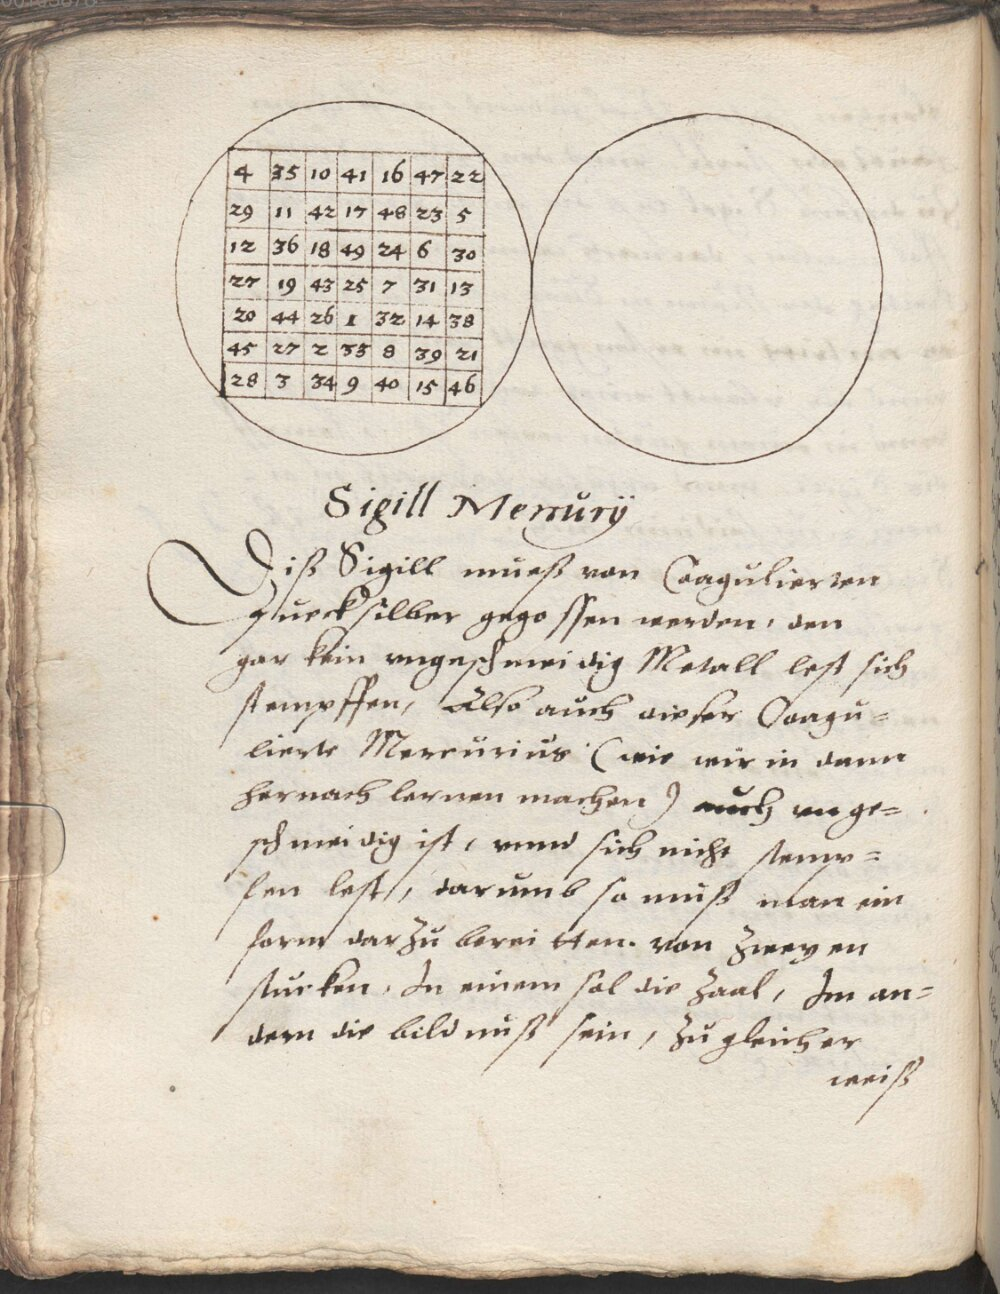 4 35 10 41 16 47 22
29 11 42 17 48 23 5
12 36 18 49 24 6 30
27 19 43 25 7 31 13
20 44 26 1 32 14 38
45 27 2 33 8 39 21
28 3 34 9 40 15 46
Sigill Mercurÿ
Diß Sigill mueß von Coagulierten
Quecksilber gegossen werden, den
gar kein ungeschmeidig Metall lest sich
stempffen, Also auch dieser Coagu=
lierte Mercurius (wie wir in dann
hernach lernen machen) auch unge=
schmeidig ist, unnd sich nicht stemp=
fen lest, darumb so muß man ein
form darzu bereitten. von zweyen
stucken. In einem sol die zaal, Im an=
dern die bildnuß sein, zu gleicher
weiß